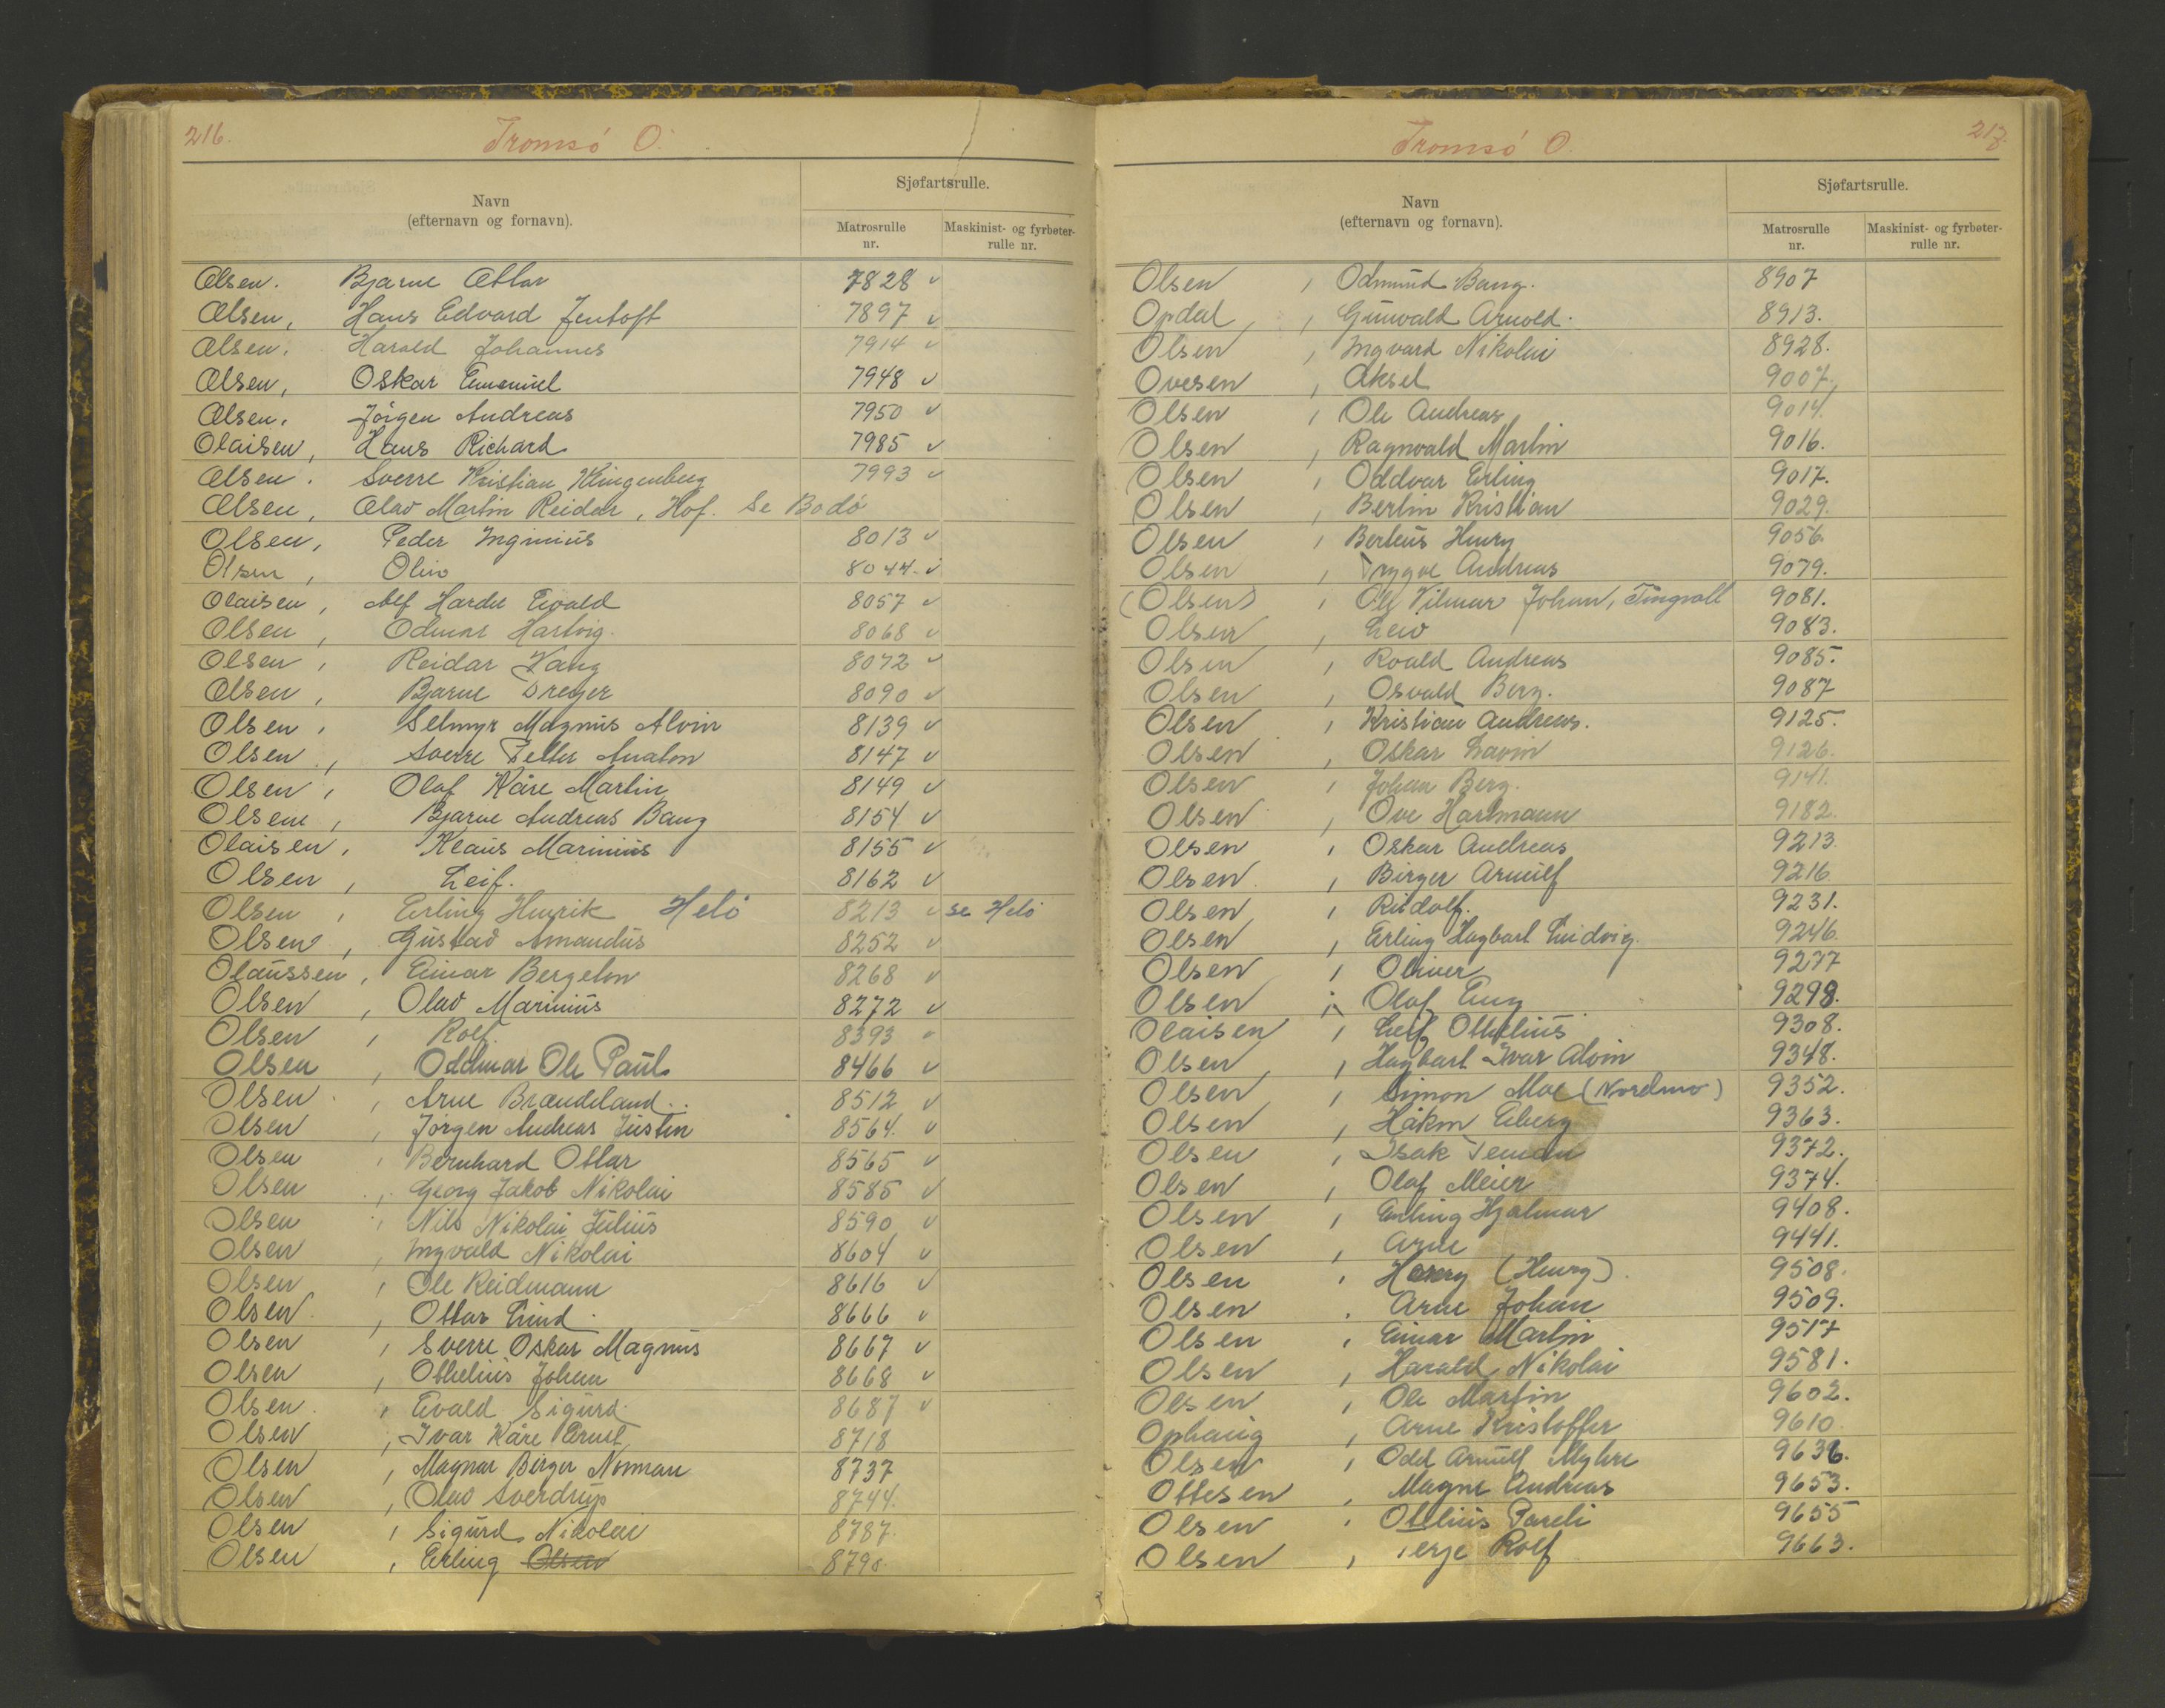 216.
Tromsö O.
Navn
(efternavn og fornavn).
Sjøfartsrulle.
Matrosrulle
nr.
Maskinist- og fyrbøter-
rulle nr.
Olsen. Bjarne Ottar 7828 v
Olsen, Hans Edvard Jentoft 7897 v
Olsen. Harald Johannes 7914 v
Olsen, Oskar Emanuel 7948 v
Olsen. Jörgen Andreas 7950 v
Olaisen, Hans Richard 7985 v
Olsen. Sverre Kristian Klingenberg 7993 v
Olsen, Olav Martin Reidar, Hof. Se Bodö
Olsen, Peder Ingmius 8013 v
Olsen, Oliv 8044. v
Olaisen, Alf Hardu Evald 8057 v
Olsen, Odmar Hartvig. 8068 v
Olsen, Reidar Vang 8072 v
Olsen, Bjarne Dreyer 8090 v
Olsen, Selmyr Magnus Alvin 8139 v
Olsen, Sverre Petter Anaton 8147 v
Olsen, Olaf Kåre Martin 8149 v
Olsen, Bjarne Andreas Bang 8154 v
Olaisen, Klaus Marinius 8155 v
Olsen, Leif. 8162 v
Olsen, Erling Henrik Helö 8213 v se Helö
Olsen, Gustav Amandus 8252 v
Olaussen, Einar Bergeton 8268 v
Olsen, Olav Marinius 8272 v
Olsen, Rolf. 8393 v
Olsen, Oddmar Ole Paul 8466 v
Olsen, Arne Brændeland.. 8512 v
Olsen, Jörgen Andreas Justin 8564. v
Olsen, Bernhard Ottar 8565 v
Olsen, Georg Jakob Nikolai 8585 v
Olsen, Nils Nikolai Julius 8590 v
Olsen, Ingvald Nikolai 8604 v
Olsen, Ole Reidmann 8616 v
Olsen, Ottar Lind 8666 v
Olsen, Sverre Oskar Magnus 8667 v
Olsen, Othelius Johan 8668 v
Olsen, Evald Sigurd 8687 v
Olsen, Ivar Kåre Ernst 8718
Olsen, Magnar Birger Norman 8737
Olsen, Olav Sverdrup 8744.
Olsen, Sigurd Nikolai 8787.
Olsen, Erling Olsen 8790.
217.
Tromsö O.
Navn
(efternavn og fornavn).
Sjøfartsrulle.
Matrosrulle
nr.
Maskinist- og fyrbøter-
rulle nr.
Olsen, Odmund Bang. 8907
Opdal, Gunvald Arnold. 8913.
Olsen, Ingvard Nikolai 8928.
Ovesen, Aksel 9007.
Olsen, Ole Andreas 9014.
Olsen, Ragnvald Martin 9016.
Olsen, Oddvar Erling 9017.
Olsen, Bertin Kristian 9029.
Olsen, Berteus Henry 9056.
Olsen, Trygve Andreas 9079.
(Olsen), Ole Vilmar Johan, Tingvoll 9081.
Olsen, Leiv 9083.
Olsen, Roald Andreas 9085.
Olsen, Osvald Berg. 9087
Olsen, Kristian Andreas. 9125.
Olsen, Oskar Lavin 9126.
Olsen, Johan Berg. 9141.
Olsen, Ove Hartmann 9182.
Olsen, Oskar Andreas 9213.
Olsen, Birger Arnulf 9216.
Olsen, Rudolf. 9231.
Olsen, Erling Hagbart Ludvig. 9246.
Olsen, Oliver 9277
Olsen, Olaf Eng 9298.
Olaisen, Leif Othelius 9308.
Olsen, Hagbart Ivar Alvin 9348.
Olsen, Simon Moe (Nordmo) 9352.
Olsen, Håkon Eberg 9363.
Olsen, Isak Teman 9372.
Olsen, Olaf Meier 9374.
Olsen, Erling Hjalmar 9408.
Olsen, Arne 9441.
Olsen, Harry (Henry). 9508.
Olsen, Arne Johan 9509.
Olsen, Einar Martin 9517
Olsen, Harald Nikolai 9581.
Olsen, Ole Martin 9602.
Ophaug, Arne Kristoffer 9610
Olsen, Odd Arnulf Myhre 9636.
Ottesen, Magne Andreas 9653.
Olsen, Otelius Pareli 9655
Olsen, Terje Rolf 9663.